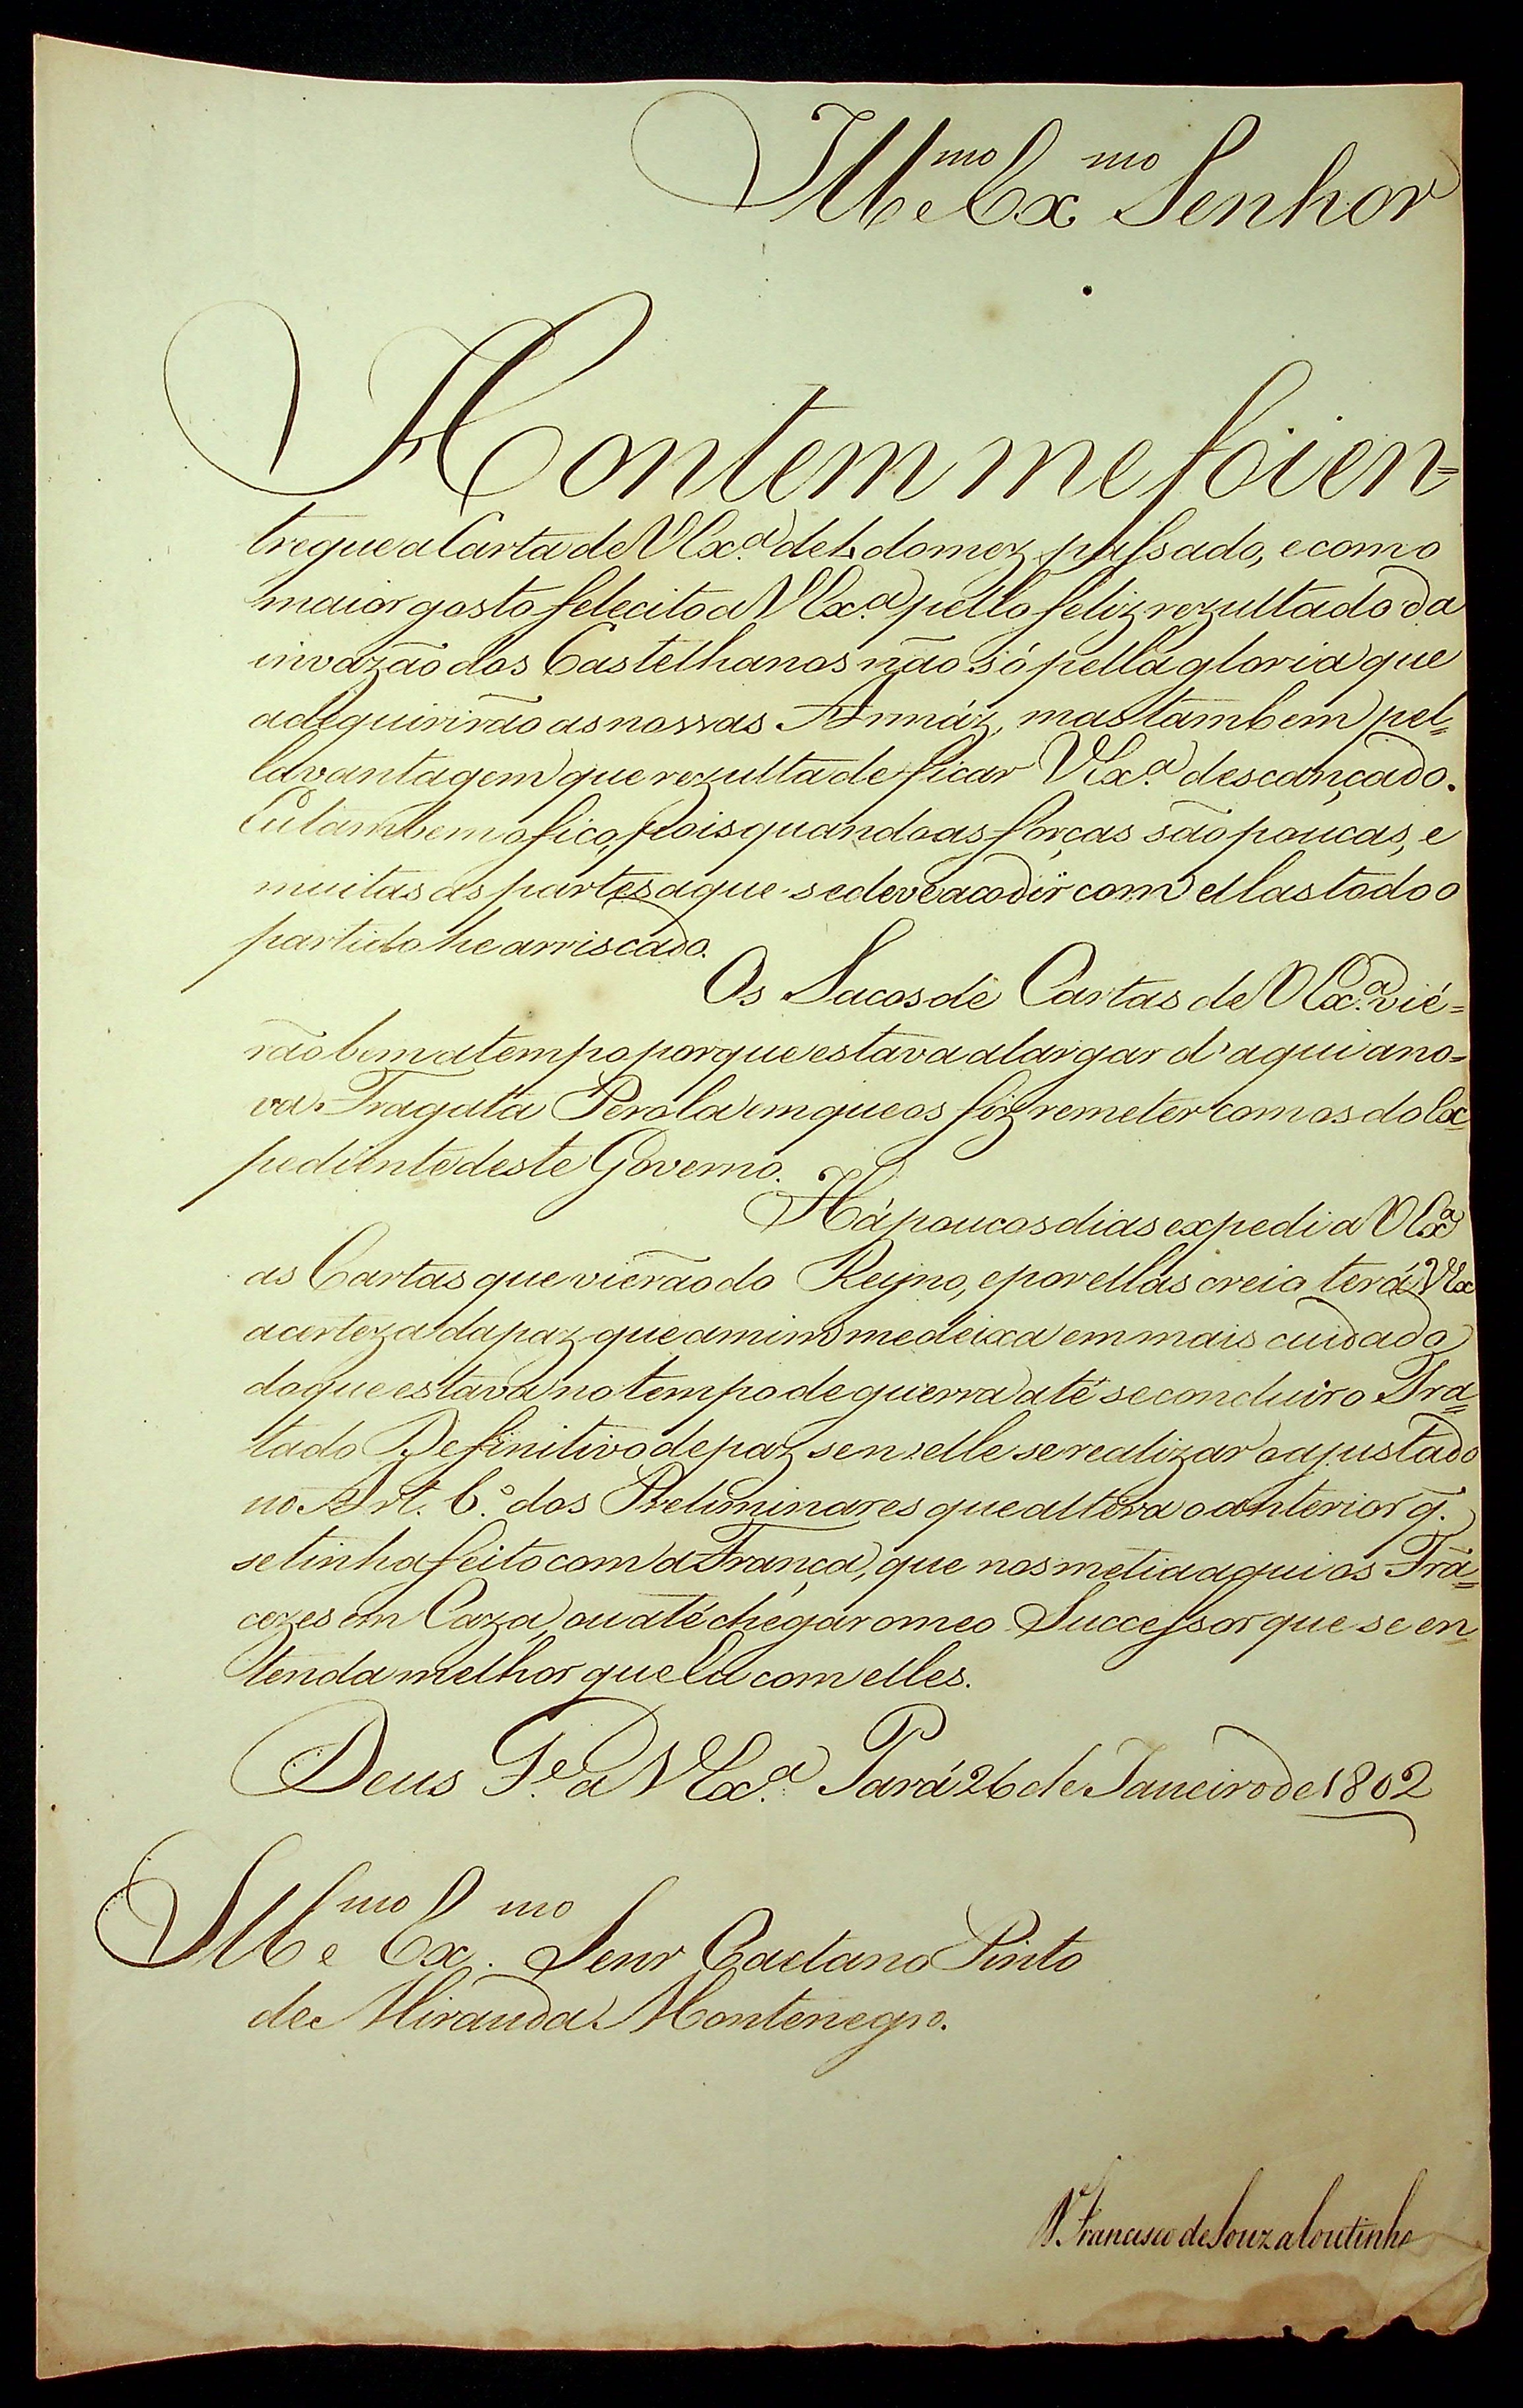 Ill.mo e Ex.mo Senhor
Hontem me foi en=
tregue a Carta de V Ex.a de 1 do mez passado, e com o
maior gosto felecito a V Ex.a pello feliz rezultado da
invazão dos Castelhanos não só pella gloria que
adequirirão as nossas Armáz, mas tambem pel=
la vantagem que rezulta de ficar V Ex.a descançado.
Eu tambem o fico, pois quando as forças são poucas, e
muitas as partes a que se deve acodir com ellas todo o
partido he arriscado.
Os Sacos de Cartas de V Ex.a vié=
rão bem a tempo porque estava a largar d'aqui a no=
va Fragata Perola em que os fiz remeter com os do Ex=
pediente deste Governo.
Há poucos dias expedi a V Ex.a
as Cartas que vierão do Reyno, e por ellas creio terá V Ex
a certeza da paz que a mim me deixa em mais cuidado
do que estava no tempo de guerra até se concluir o Tra=
tado Definitivo de paz, se n'elle se realizar o ajustado
no Art. 6.º dos Preliminares que altera o anterior q.
se tinha feito com a França, que nos metia aqui os Frã=
cezes em Caza, ou até chegar o meo Successor que se en=
tenda melhor que Eu com elles.
Deus G.e a V Ex.a Pará 26 de Janeiro de 1802
Ill.mo e Ex.mo Senr Caetano Pinto
de Miranda Montenegro.
D. Francisco de Souza Coutinho